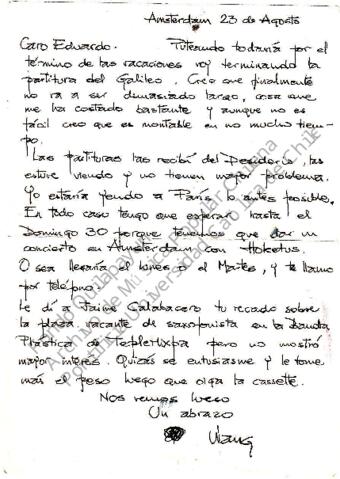 Amsterdam 23 de Agosto
Caro Eduardo. Puteando todavía por el
término de las vacaciones voy terminando la
partitura del Galileo. Creo que finalmente
no va a ser demasiado largo, cosa que
me ha costado bastante y aunque no es
fácil creo que es montable en no mucho tiem-
po.
Las partituras las recibí del Desiderio, las
estuve viendo y no tienen mayor problema.
Yo estaría yendo a París lo antes posible.
En todo caso tengo que esperar hasta el
Domingo 30 porque tenemos que dar un
concierto en Amsterdam con Hoketus.
O sea llegaría el lunes o el Martes, y te llamo
por teléfono.
Le di a Jaime Calabacero tu recado sobre
la plaza vacante de saxofonista en la Banda
Phástica de pero no mostró
mayor interés. Quizás se entusiasme y le tome
más el peso luego que oiga la cassette.
Nos vemos luego
Un abrazo
Archivo de Música Popular Chilena
Pontificia Universidad Católica de Chile